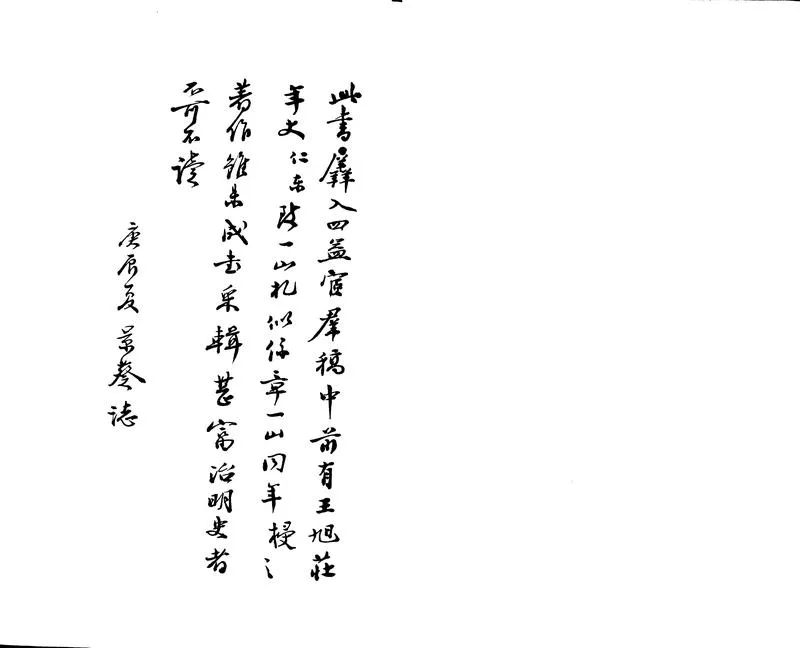 此書羼入四益宧羣稿中前有王旭莊
年丈仁東致一山札似係章一山同年梫之
著作雖未成書采輯甚富治明史者
不可不讀
庚辰夏景葵誌